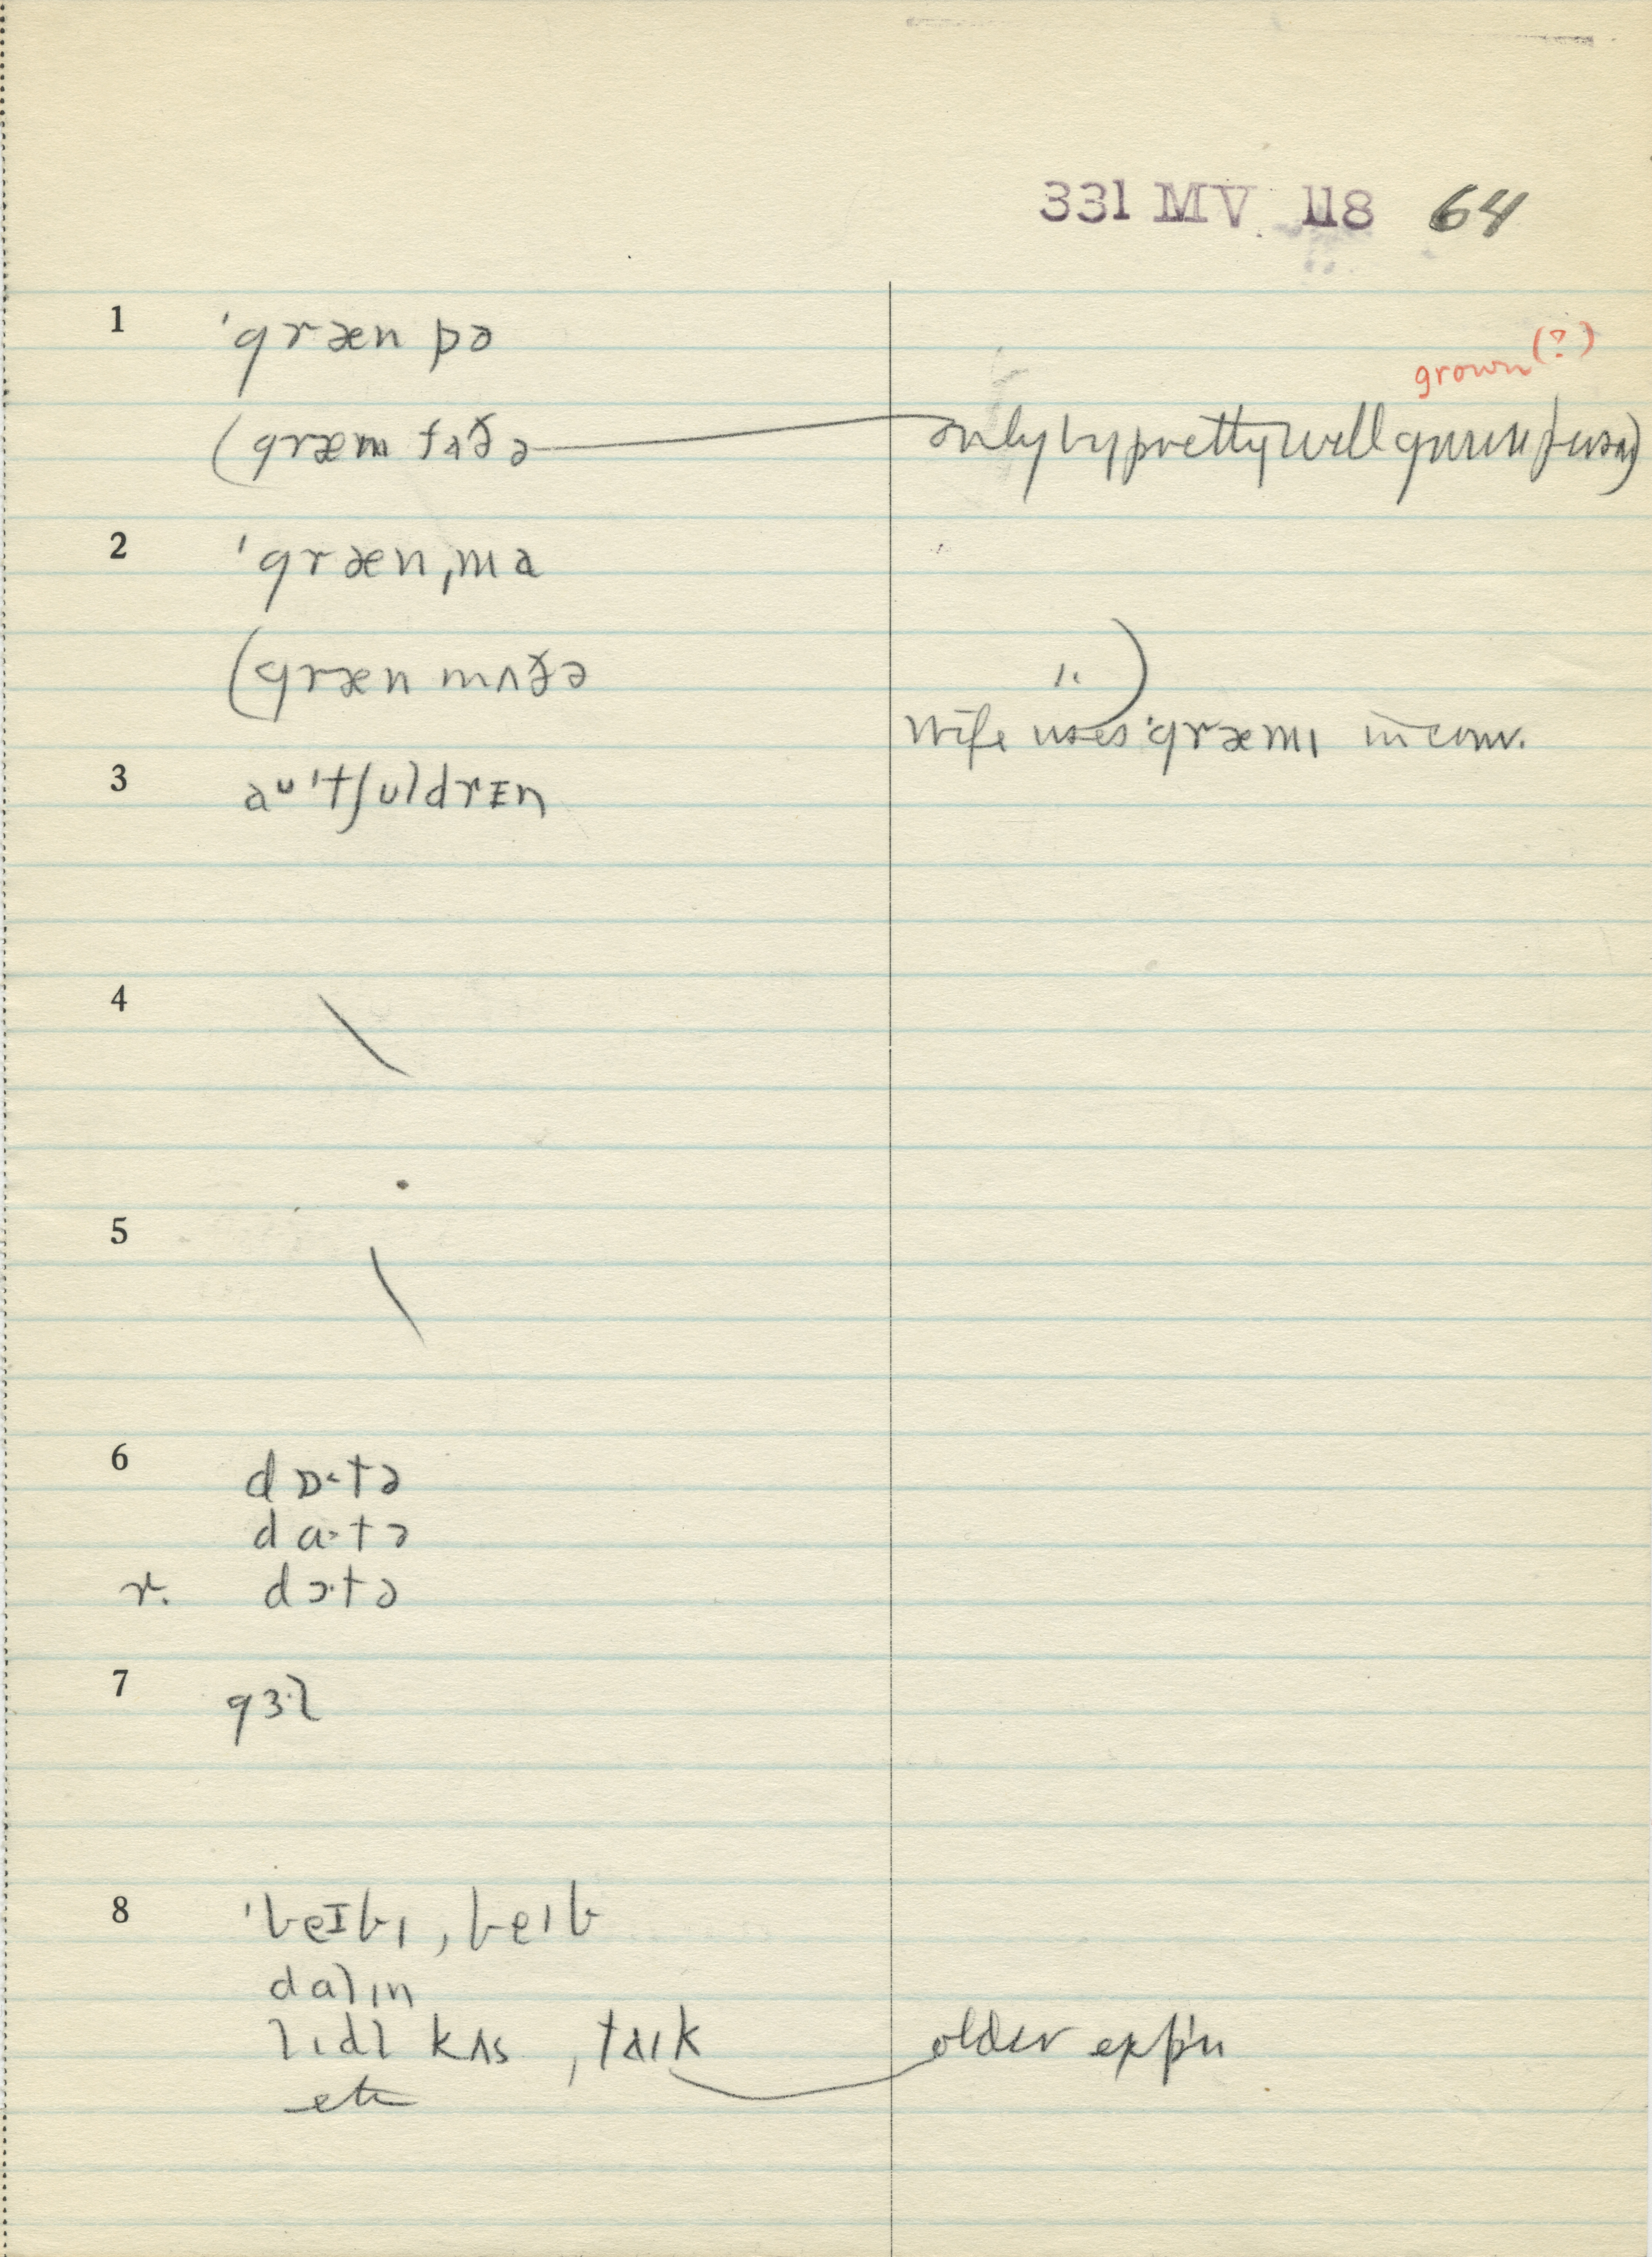 331 MV 118 64
1 ˈgræn pə
grown (?)
(græm faðə only by pretty well grown person)
2 ˈgræn ˌma
(græn mʌðə ")
Wife uses ˈgræmɪ in conv.
3 aᴜˈtʃʊldrɪn
4
5
6 dɒ·tə
dɑ·tə
r. dɔ·tə
7 gɜ·l
8 ˈbeɪbɪ, beɪb
dalɪn
lɪdl kʌs, taɪk older exp'n
etc